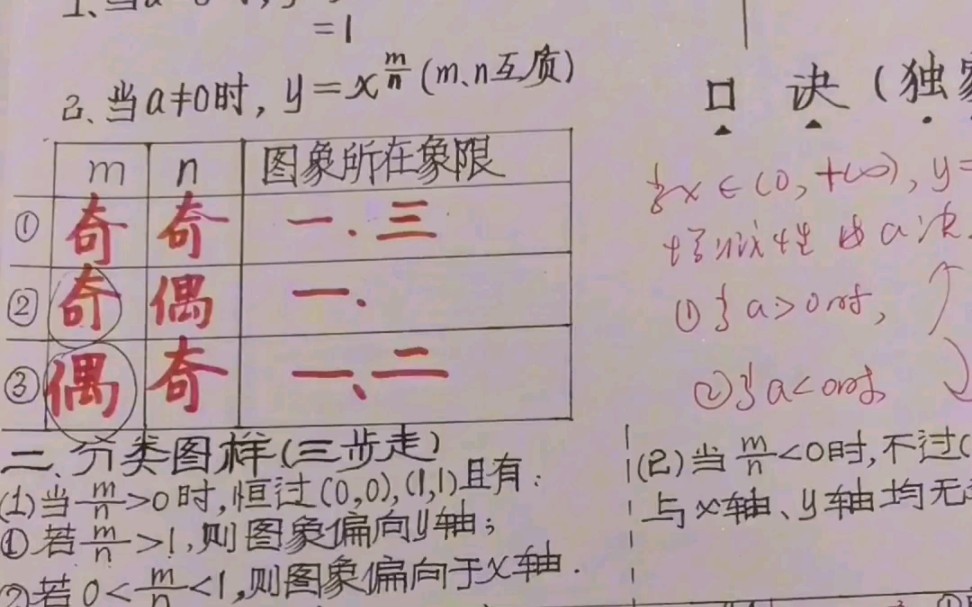 1.当a
=1
2.当a≠0时, y=x^(m/n) (m、n互质)
m n 图象所在象限
① 奇 奇 一、三
② 奇 偶 一.
③ 偶 奇 一、二
二、分类图样(三步走)
(1)当m/n>0时,恒过(0,0),(1,1)且有:
①若m/n>1,则图象偏向y轴;
②若0<m/n<1,则图象偏向于x轴.
口诀(独家
当x∈(0,+∞), y=
增减性由a决
①当a>0时,
②当a<0时
(2)当m/n<0时,不过(
与x轴、y轴均无